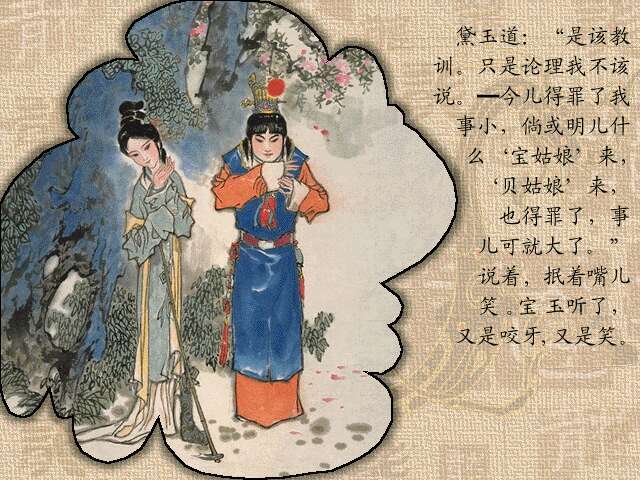 黛玉道：“是该教
训。只是论理我不该
说。—今儿得罪了我
事小，倘或明儿什
么‘宝姑娘’来，
‘贝姑娘’来，
也得罪了，事
儿可就大了。”
说着，抿着嘴儿
笑。宝玉听了，
又是咬牙，又是笑。